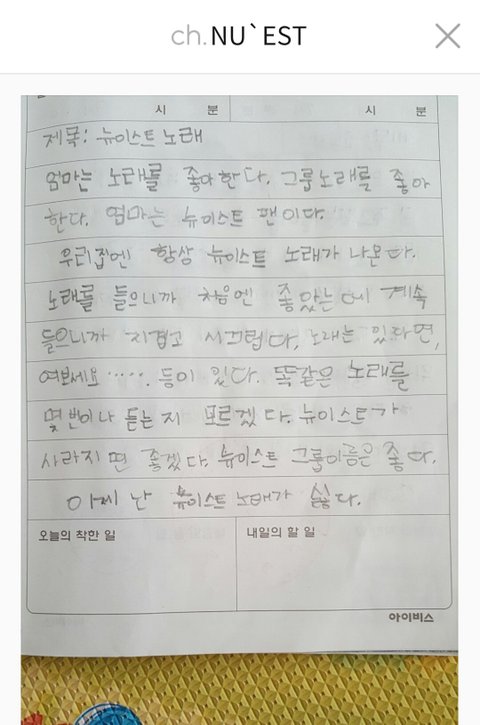 ch.NU`EST
시 분 시 분
제목: 뉴이스트 노래
엄마는 노래를 좋아한다. 그룹노래를 좋아
한다. 엄마는 뉴이스트 팬이다.
우리집엔 항상 뉴이스트 노래가 나온다.
노래를 들으니까 처음엔 좋았는데 계속
들으니까 지겹고 시끄럽다, 노래는 있다면,
여보세요...... 등이 있다. 똑같은 노래를
몇번이나 듣는지 모르겠다. 뉴이스트가
사라지면 좋겠다. 뉴이스트 그룹이름은 좋다.
이제 난 뉴이스트 노래가 싫다.
오늘의 착한 일 내일의 할 일
아이비스